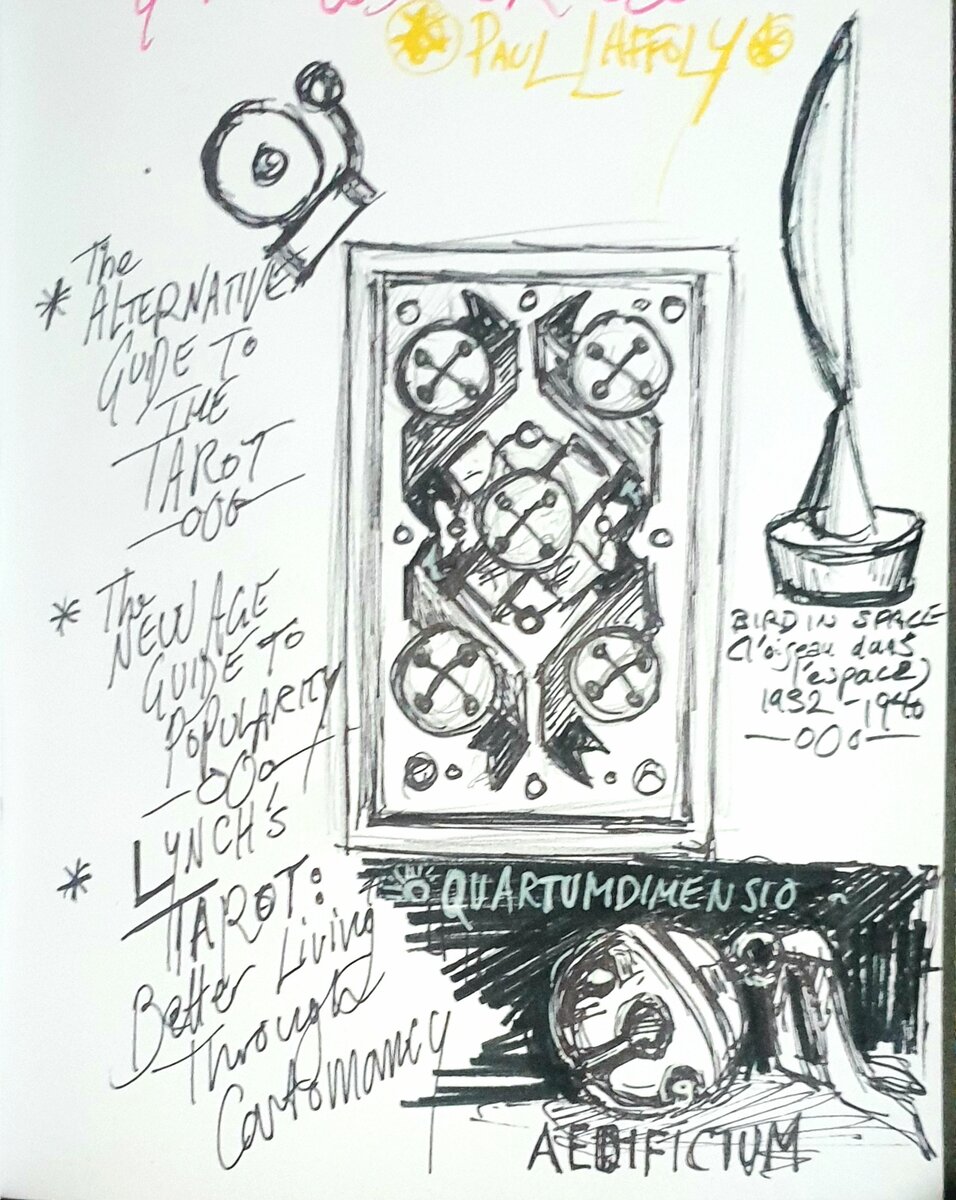 PAUL LAFFOLY
* The
ALTERNATIVE
GUIDE TO
THE
TAROT
* The
NEW AGE
GUIDE TO
POPULARITY
* LYNCH'S
TAROT:
Better Living
Through
Cartomancy
BIRD IN SPACE
(l'oiseau dans
l'espace)
1932-1940
QUARTUMDIMENSIO
AEDIFICIUM